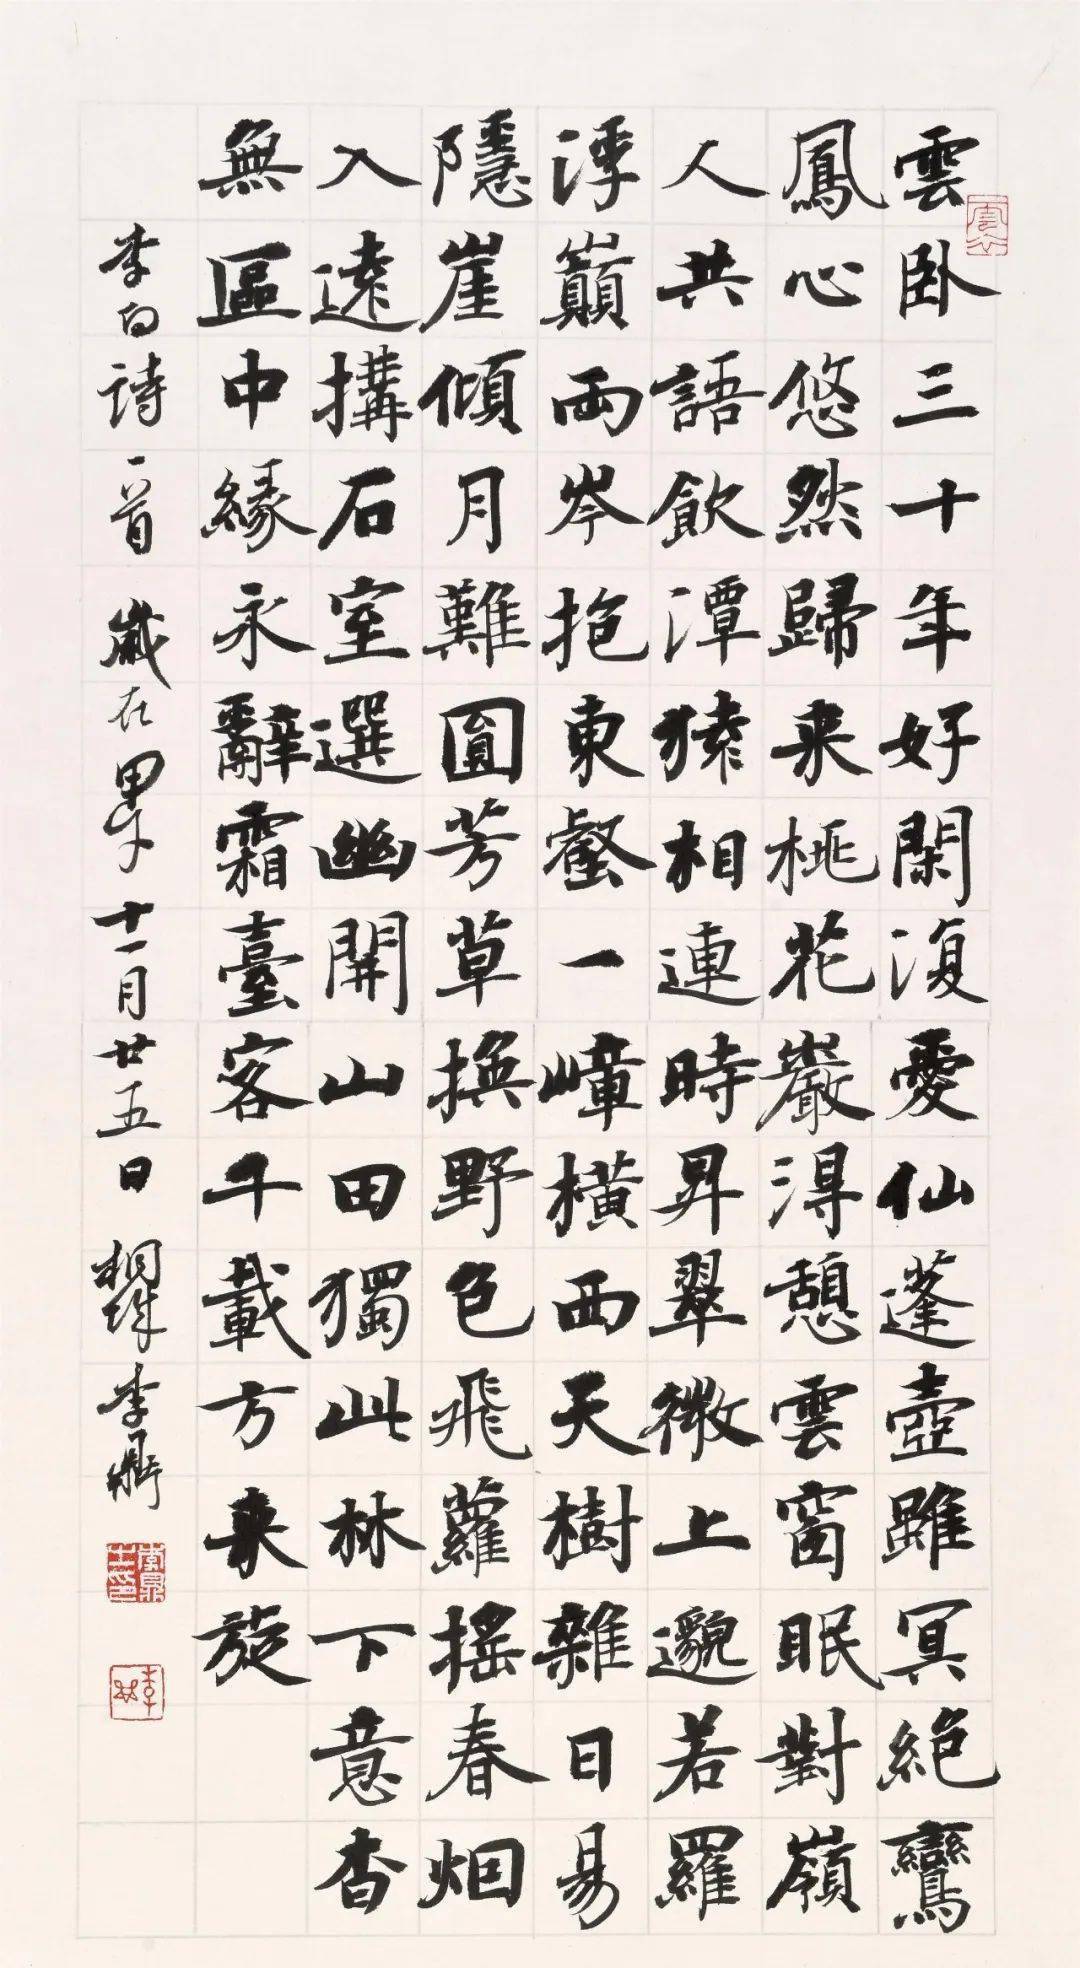 雲卧三十年好閑復愛仙蓬壺雖冥絶鸞
鳳心悠然歸来桃花巖得憩雲窗眠對嶺
人共語飲潭猿相連時昇翠微上邈若羅
浮巔兩岑抱東壑一嶂橫西天樹雜日易
隱崖傾月難圓芳草換野色飛蘿摇春烟
入遠搆石室選幽開山田獨此林下意杳
無區中緣永辭霜臺客千載方来旋
李白詩一首 歲在甲午十一月廿五日 李鼎